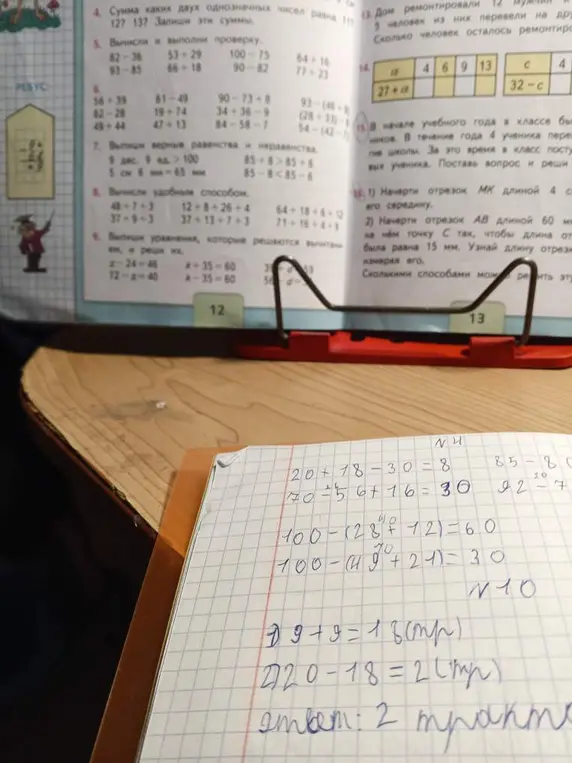 РЕБУС
4. Сумма каких двух однозначных чисел равна 11?
12? 13? Запиши эти суммы.
5. Вычисли и выполни проверку.
82 − 36 53 + 29 100 − 75 64 + 16
93 − 85 66 + 18 90 − 82 77 + 23
6.
56 + 39 81 − 49 90 − 73 + 8
82 − 28 19 + 74 34 + 36 − 9
49 + 44 47 + 13 84 − 58 − 7
7. Выпиши верные равенства и неравенства.
9 дес. 9 ед. > 100 85 + 6 > 85 + 5
5 см 6 мм = 65 мм 85 − 8 < 85 − 6
8. Вычисли удобным способом.
48 + 7 + 3 12 + 8 + 26 + 4 64 + 18 + 6 + 12
37 + 9 + 3 37 + 13 + 7 + 3 71 + 16 + 4 + 9
9. Выпиши уравнения, которые решаются вычитани
ем, и реши их.
x + 35 = 60
72 − x = 40 x − 35 = 60
12
13. Дом ремонтировали 12 мужчин и
9 человек из них перевели на дру
Сколько человек осталось ремонтиро
14.
4 6 9 13
27 +
с 4
32 − с
15. В начале учебного года в классе бы
В течение года 4 ученика пере
школы. За это время в класс посту
ученика. Поставь вопрос и реши
16. 1) Начерти отрезок МК длиной 4 с
его середину.
2) Начерти отрезок АВ длиной 60 м
на нём точку С так, чтобы длина от
была равна 15 мм. Узнай длину отрез
измеряя его.
Сколькими способами решить эту
13
N 4
20 + 18 − 30 = 8 85 − 80
70 − 56 + 16 = 30 92 − 7
100 − (28 + 12) = 60
100 − (49 + 21) = 30
N 10
1) 9 + 9 = 18 (тр)
2) 20 − 18 = 2 (тр)
ответ: 2 тракто